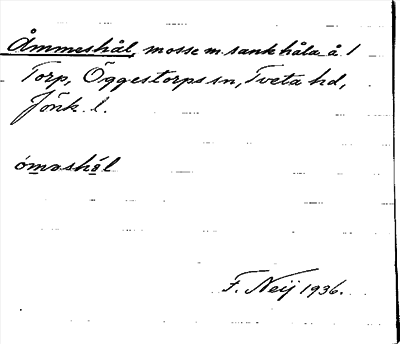 Åmmeshål, mosse m sank håla å 1
Torp, Öggestorps sn, Tveta hd,
Jönk. l.
óməshål
F. Neij 1936.